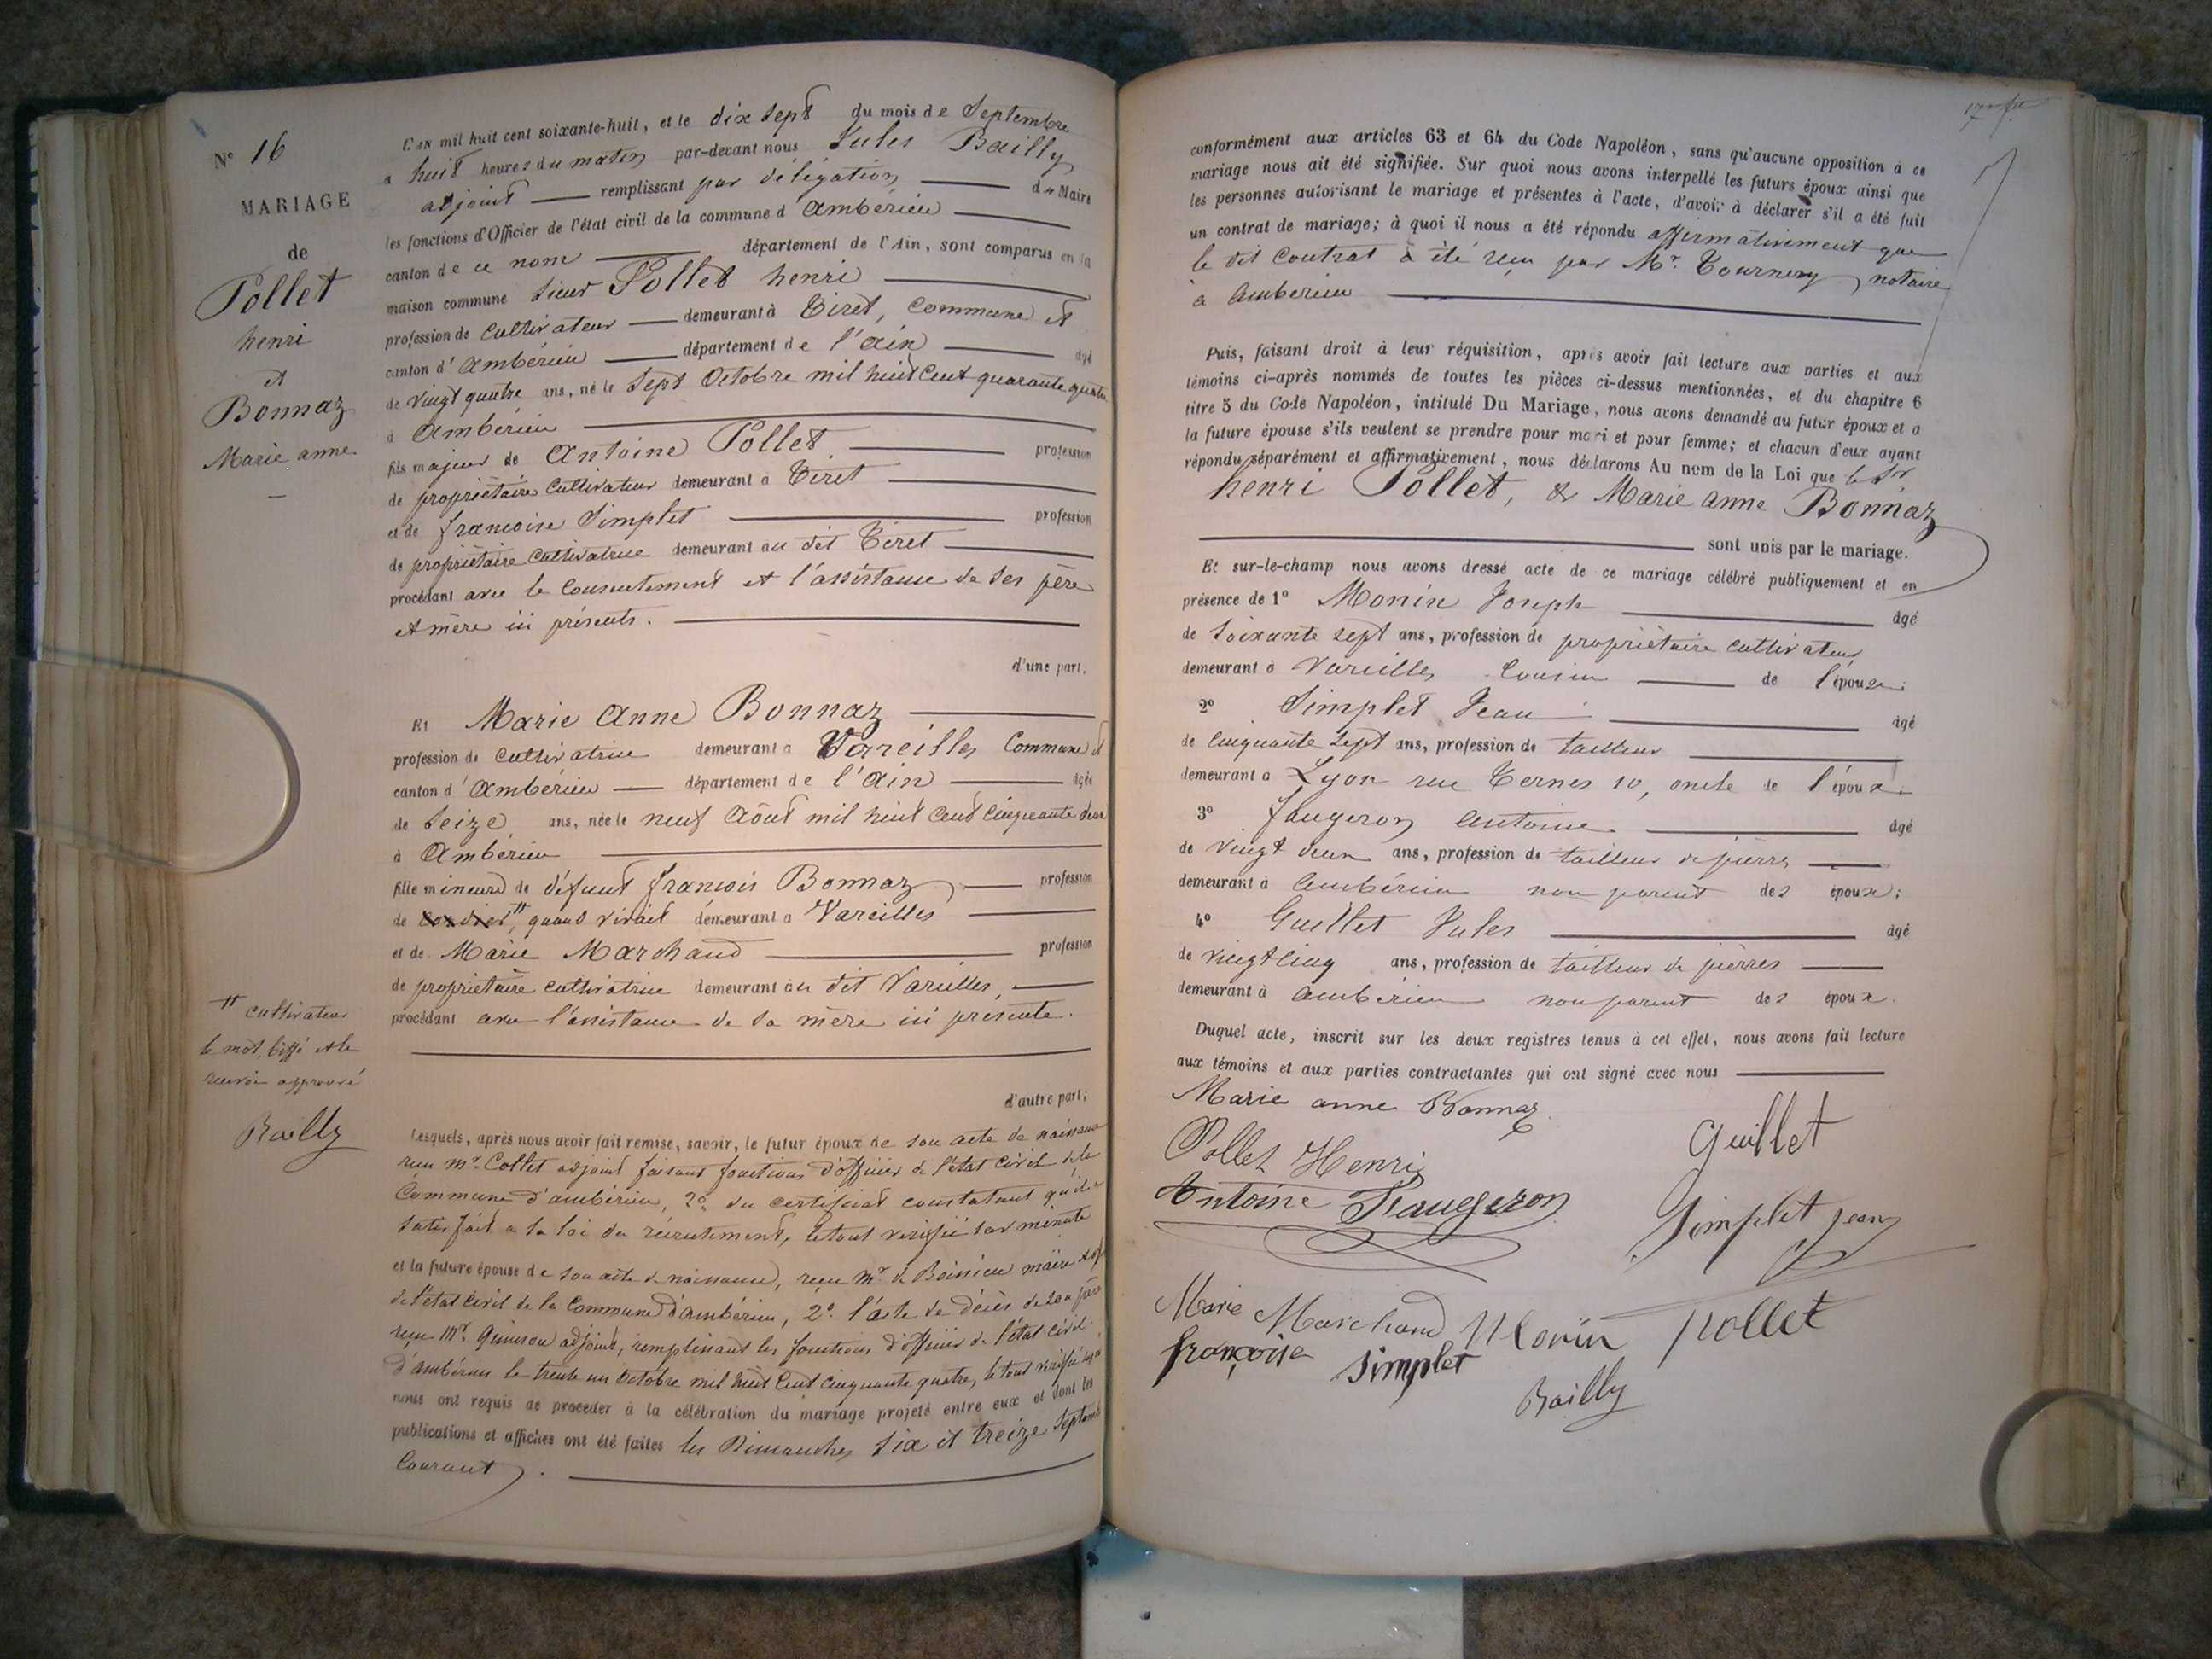 N° 16
MARIAGE
de
Pollet
henri
et
Bonnaz
Marie anne
L'an mil huit cent soixante-huit, et le dix sept du mois de Septembre
a huit heures du matin par-devant nous Jules Bailly
adjoint remplissant par délégation du Maire
les fonctions d'Officier de l'état civil de la commune d'Ambérieu
canton de ce nom département de l'Ain, sont comparus en la
maison commune Sieur Pollet henri
profession de Cultivateur demeurant à Tiret, Commune et
canton d'Ambérieu département de l'ain âgé
de vingt quatre ans, né le Sept Octobre mil huit Cent quarante quatre
à Ambérieu
fils majeur de Antoine Pollet profession
de propriétaire Cultivateur demeurant à Tiret
et de francoise Simplet profession
de propriétaire Cultivatrice demeurant au dit Tiret
procédant avec le Consentement et l'assistance de ses père
et mère ici présents.
d'une part.
Et Marie Anne Bonnaz
profession de Cultivatrice demeurant à Vareilles Commune et
canton d'Ambérieu département de l'ain âgée
de Seize ans, née le neuf Août mil huit Cent Cinquante deux
à Ambérieu
fille mineure de défunt francois Bonnaz profession
de quand vivait demeurant à Vareilles
et de Marie Marchand profession
de propriétaire cultivatrice demeurant au dit Vareilles,
procédant avec l'assistance de sa mère ici présente.
d'autre part;
cultivateur
le mot biffé et le
renvoi approuvé
Bailly
Lesquels, après nous avoir fait remise, savoir, le futur époux de son acte de naissance
reçu Mr. Collet adjoint faisant fonctions d'officier de l'état Civil de la
Commune d'ambérieu, 2° du certificat constatant qu'il a
satisfait a la loi du recrutement, le tout vérifié sur minute
et la future épouse de son acte de naissance, reçu Mr de Boissieu maire
de l'état Civil de la Commune d'ambérieu, 2° l'acte de décès de son père
reçu Mr. adjoint, remplissant les fonctions d'officier de l'état Civil
d'ambérieu le trente un Octobre mil huit Cent Cinquante quatre, le tout vérifié
nous ont requis de procéder à la célébration du mariage projeté entre eux et dont les
publications et affiches ont été faites les Dimanches Six et treize Septembre
Courant.
conformément aux articles 63 et 64 du Code Napoléon, sans qu'aucune opposition à ce
mariage nous ait été signifiée. Sur quoi nous avons interpellé les futurs époux ainsi que
les personnes autorisant le mariage et présentes à l'acte, d'avoir à déclarer s'il a été fait
un contrat de mariage; à quoi il nous a été répondu affirmativement que
le dit Contrat à été reçu par Mr. Tournery notaire
à Ambérieu
Puis, faisant droit à leur réquisition, après avoir fait lecture aux parties et aux
témoins ci-après nommés de toutes les pièces ci-dessus mentionnées, et du chapitre 6
titre 5 du Code Napoléon, intitulé Du Mariage, nous avons demandé au futur époux et à
la future épouse s'ils veulent se prendre pour mari et pour femme; et chacun d'eux ayant
répondu séparément et affirmativement, nous déclarons Au nom de la Loi que le Sr
henri Pollet, & Marie anne Bonnaz
sont unis par le mariage.
Et sur-le-champ nous avons dressé acte de ce mariage célébré publiquement et en
présence de 1° Monin Joseph âgé
de Soixante sept ans, profession de propriétaire cultivateur
demeurant à Vareilles Cousin de l'épouse;
2° Simplet Jean âgé
de Cinquante Sept ans, profession de tailleur
demeurant à Lyon rue Ternes 10, oncle de l'époux.
3° faugeron Antoine âgé
de vingt deux ans, profession de tailleur de pierres
demeurant à Ambérieu non parent des époux;
4° Guillet Jules âgé
de vingt cinq ans, profession de tailleur de pierres
demeurant à Ambérieu non parent des époux.
Duquel acte, inscrit sur les deux registres tenus à cet effet, nous avons fait lecture
aux témoins et aux parties contractantes qui ont signé avec nous
Marie anne Bonnaz
Guillet
Pollet Henri
Antoine Faugeron
Simplet Jean
Marie Marchand Monin Pollet
françoise Simplet
Bailly